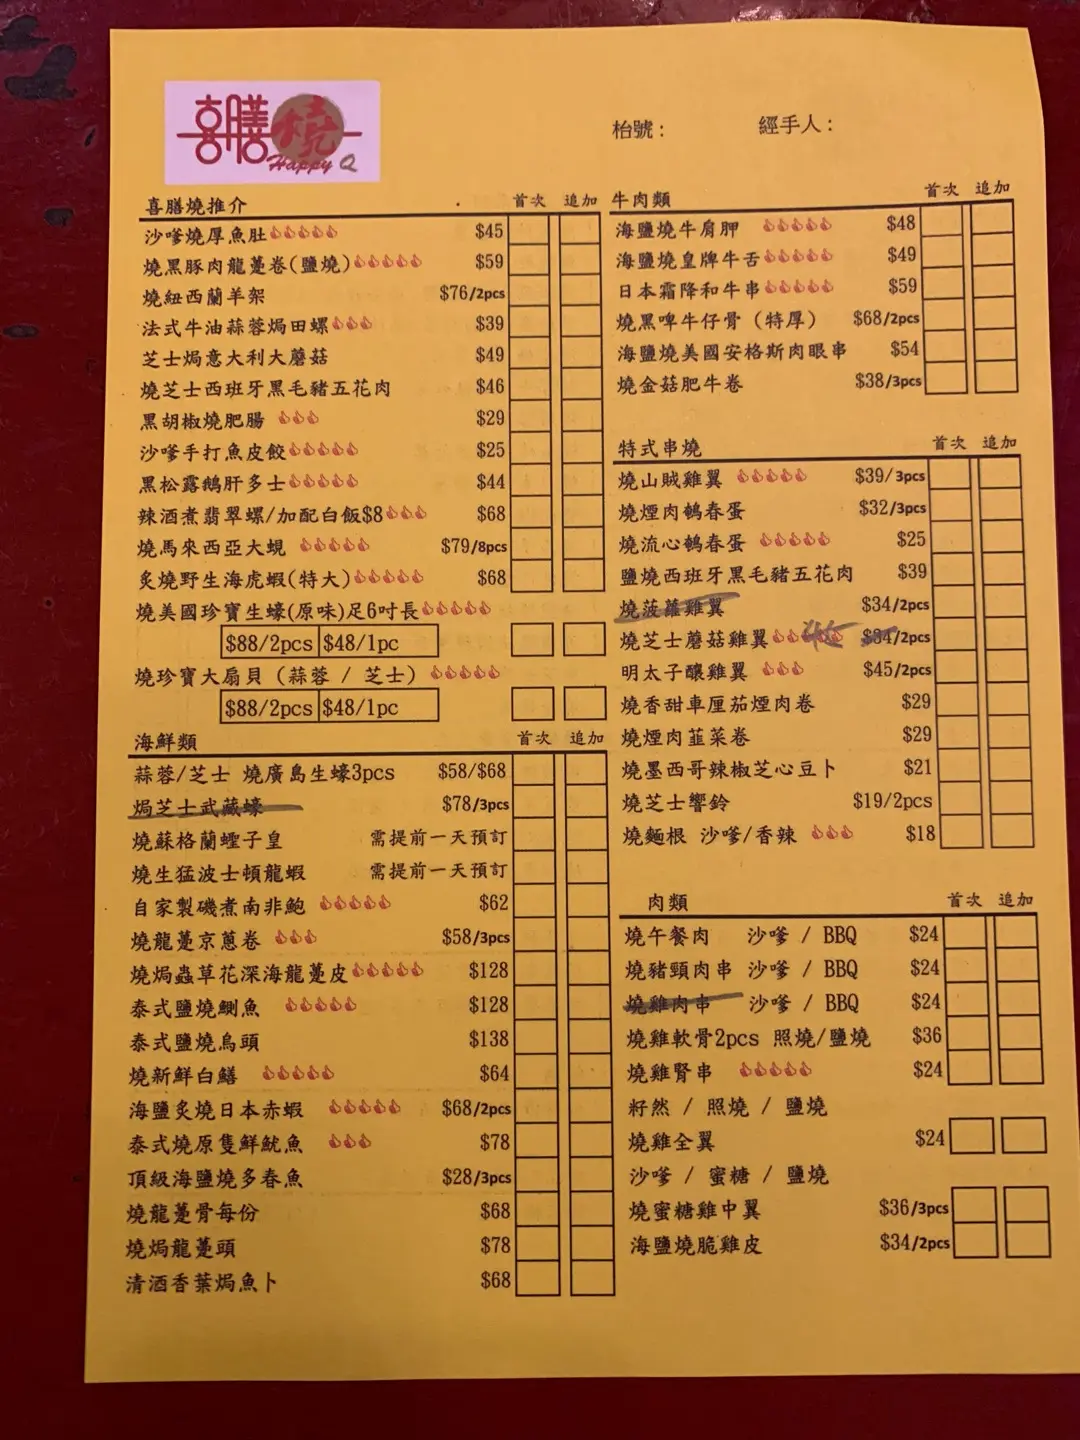 喜膳燒
Happy Q
枱號：
經手人：
喜膳燒推介 首次 追加
沙嗲燒厚魚肚 $45
燒黑豚肉龍躉卷(鹽燒) $59
燒紐西蘭羊架 $76/2pcs
法式牛油蒜蓉焗田螺 $39
芝士焗意大利大蘑菇 $49
燒芝士西班牙黑毛豬五花肉 $46
黑胡椒燒肥腸 $29
沙嗲手打魚皮餃 $25
黑松露鵝肝多士 $44
辣酒煮翡翠螺/加配白飯$8 $68
燒馬來西亞大蜆 $79/8pcs
炙燒野生海虎蝦(特大) $68
燒美國珍寶生蠔(原味)足6吋長
$88/2pcs $48/1pc
燒珍寶大扇貝 (蒜蓉 / 芝士)
$88/2pcs $48/1pc
海鮮類 首次 追加
蒜蓉/芝士 燒廣島生蠔3pcs $58/$68
焗芝士武藏蠔 $78/3pcs
燒蘇格蘭蟶子皇 需提前一天預訂
燒生猛波士頓龍蝦 需提前一天預訂
自家製磯煮南非鮑 $62
燒龍躉京蔥卷 $58/3pcs
燒焗蟲草花深海龍躉皮 $128
泰式鹽燒鯏魚 $128
泰式鹽燒烏頭 $138
燒新鮮白鱔 $64
海鹽炙燒日本赤蝦 $68/2pcs
泰式燒原隻鮮魷魚 $78
頂級海鹽燒多春魚 $28/3pcs
燒龍躉骨每份 $68
燒焗龍躉頭 $78
清酒香葉焗魚卜 $68
牛肉類 首次 追加
海鹽燒牛肩胛 $48
海鹽燒皇牌牛舌 $49
日本霜降和牛串 $59
燒黑啤牛仔骨 (特厚) $68/2pcs
海鹽燒美國安格斯肉眼串 $54
燒金菇肥牛卷 $38/3pcs
特式串燒 首次 追加
燒山賊雞翼 $39/3pcs
燒煙肉鵪春蛋 $32/3pcs
燒流心鵪春蛋 $25
鹽燒西班牙黑毛豬五花肉 $39
燒菠蘿雞翼 $34/2pcs
燒芝士蘑菇雞翼 $34/2pcs
明太子釀雞翼 $45/2pcs
燒香甜車厘茄煙肉卷 $29
燒煙肉韮菜卷 $29
燒墨西哥辣椒芝心豆卜 $21
燒芝士響鈴 $19/2pcs
燒麵根 沙嗲/香辣 $18
肉類 首次 追加
燒午餐肉 沙嗲 / BBQ $24
燒豬頸肉串 沙嗲 / BBQ $24
燒雞肉串 沙嗲 / BBQ $24
燒雞軟骨2pcs 照燒/鹽燒 $36
燒雞腎串 $24
籽然 / 照燒 / 鹽燒
燒雞全翼 $24
沙嗲 / 蜜糖 / 鹽燒
燒蜜糖雞中翼 $36/3pcs
海鹽燒脆雞皮 $34/2pcs